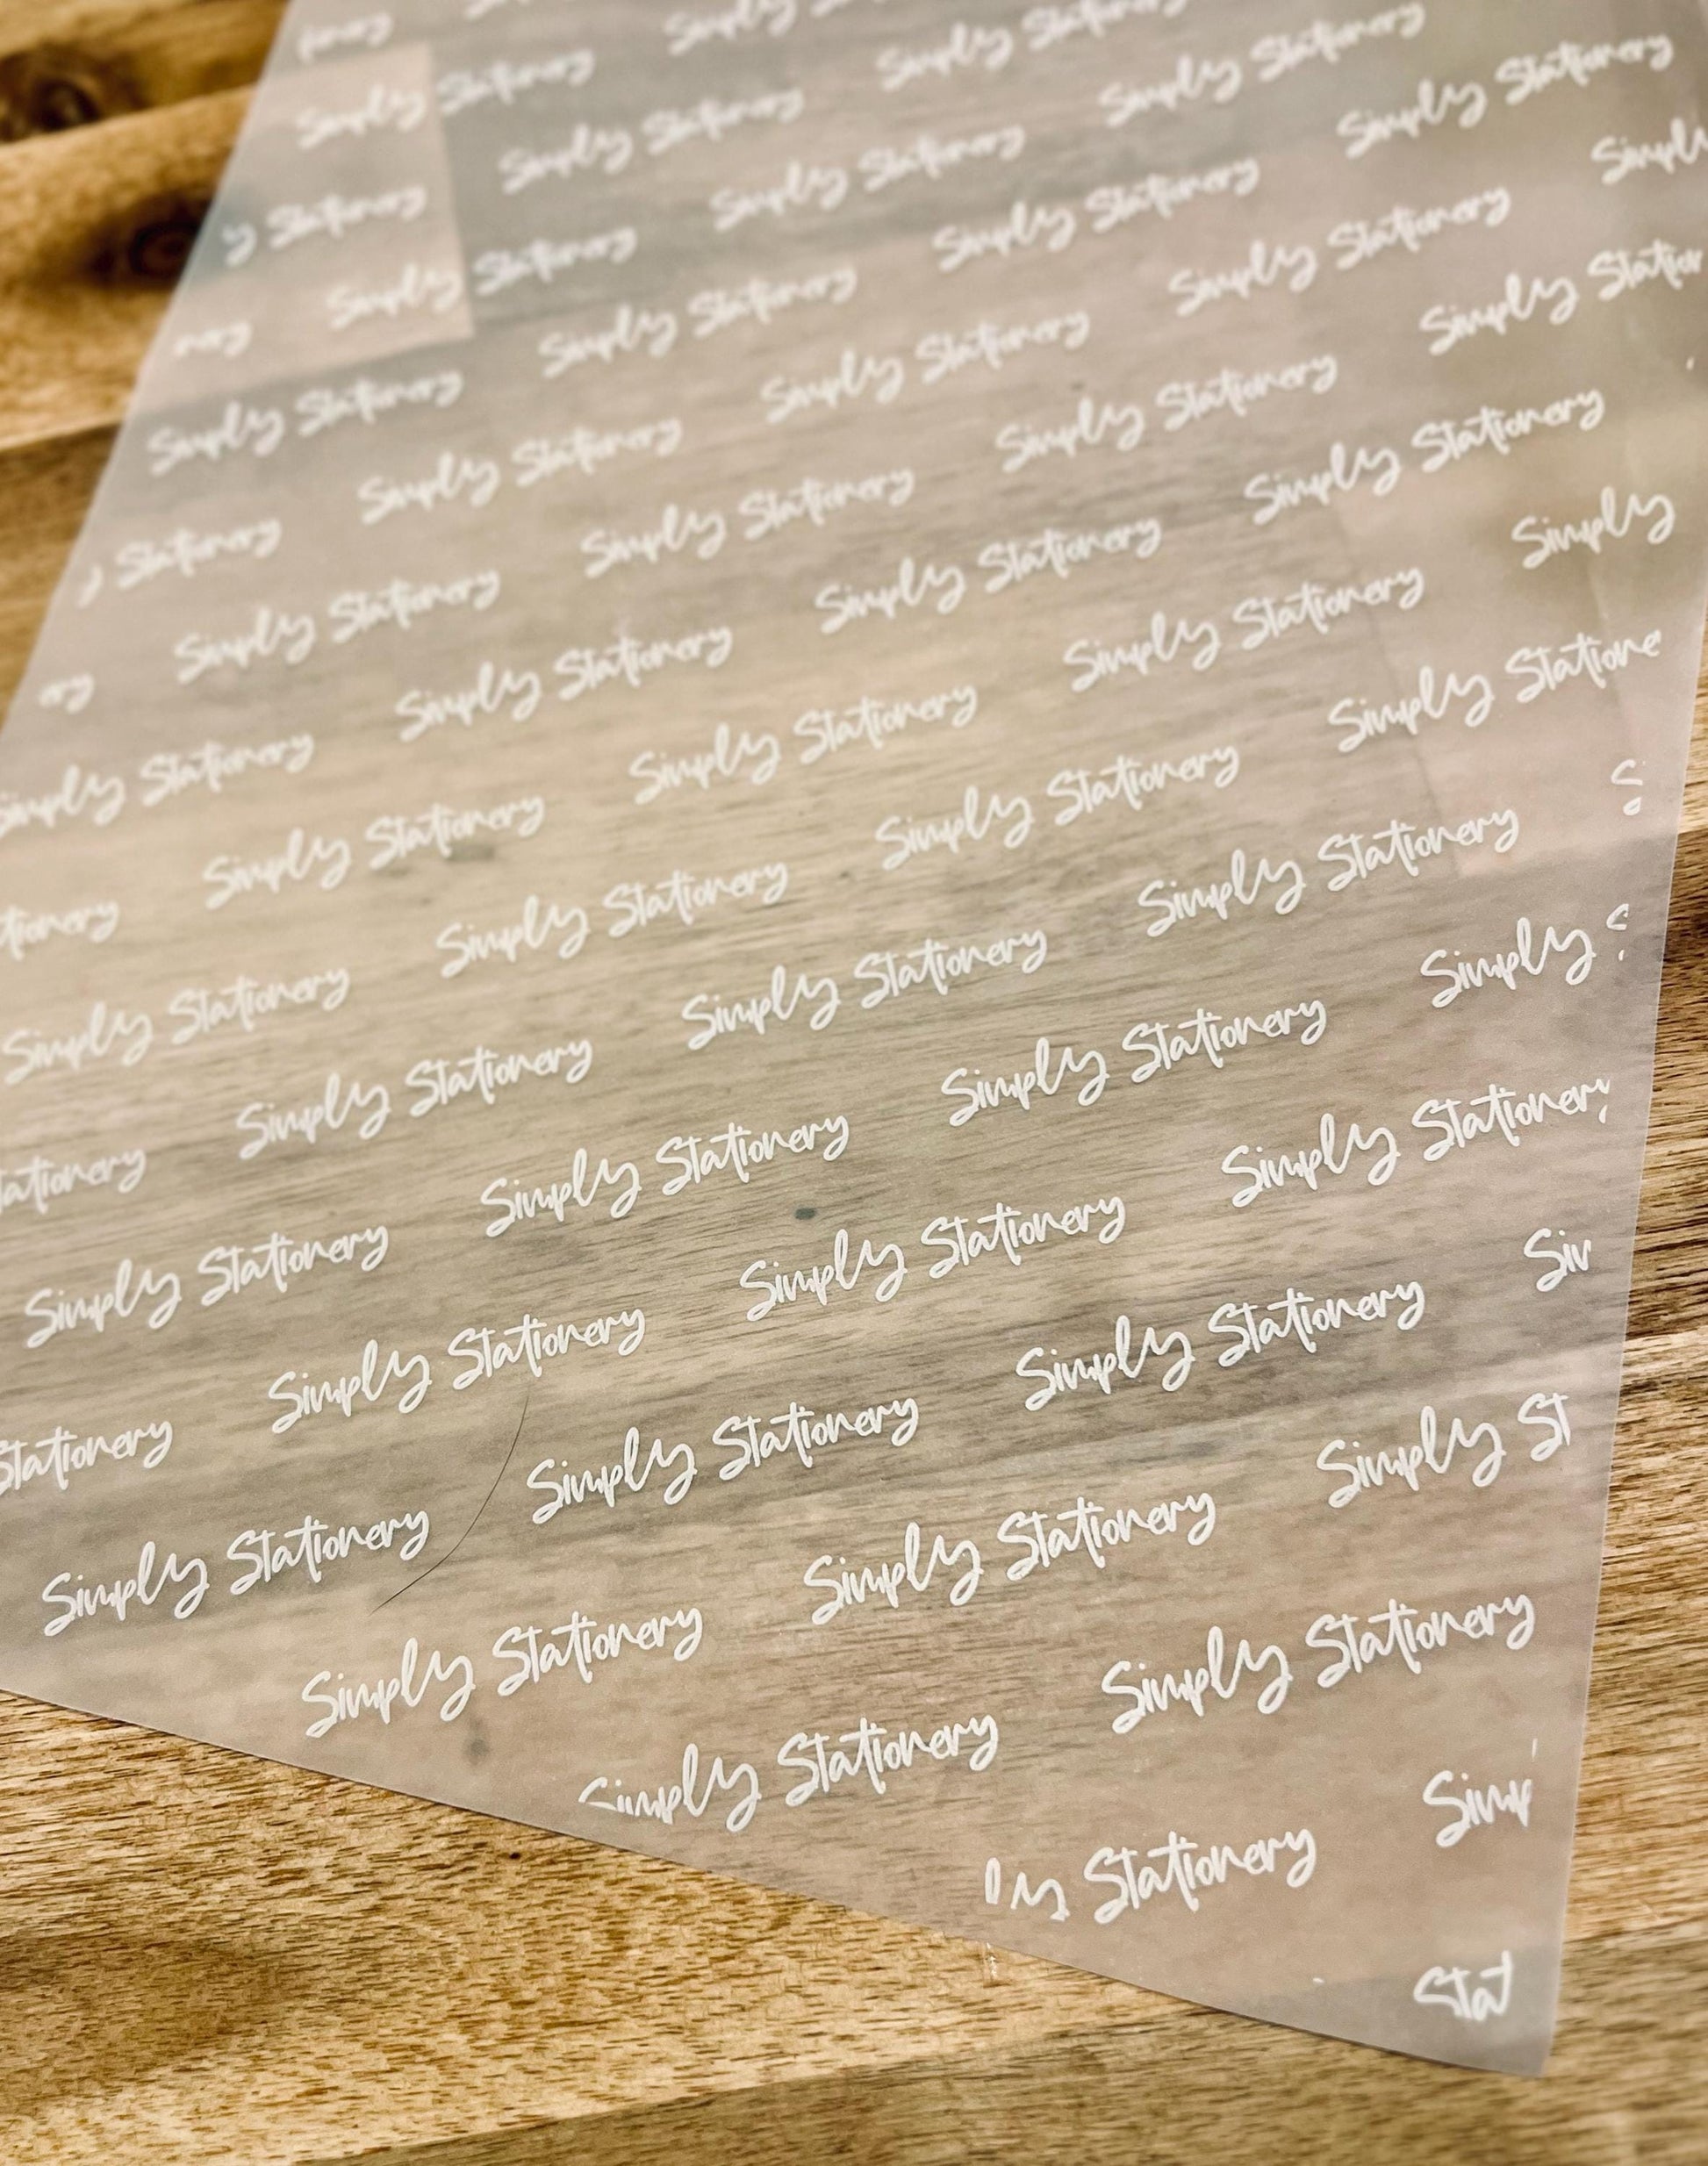 ionery
Simply Stationery Simply
y Stationery Simply Stationery Simply Stationery
nery Simply Stationery Simply Stationery Simply Stationery
Simply Stationery Simply Stationery Simply Stationery Simply Stationery
y Stationery Simply Stationery Simply Stationery Simply Stationery Simply
ery Simply Stationery Simply Stationery Simply Stationery Simply Station
Simply Stationery Simply Stationery Simply Stationery Simply Stationery
tionery Simply Stationery Simply Stationery Simply Stationery Simply
Simply Stationery Simply Stationery Simply Stationery Simply Statione
tationery Simply Stationery Simply Stationery Simply Stationery S
Simply Stationery Simply Stationery Simply Stationery Simply S
Stationery Simply Stationery Simply Stationery Simply Stationery
Simply Stationery Simply Stationery Simply Stationery Sim
Simply Stationery Simply Stationery Simply St
Simply Stationery Simply Stationery
ly Stationery Simp
Stat